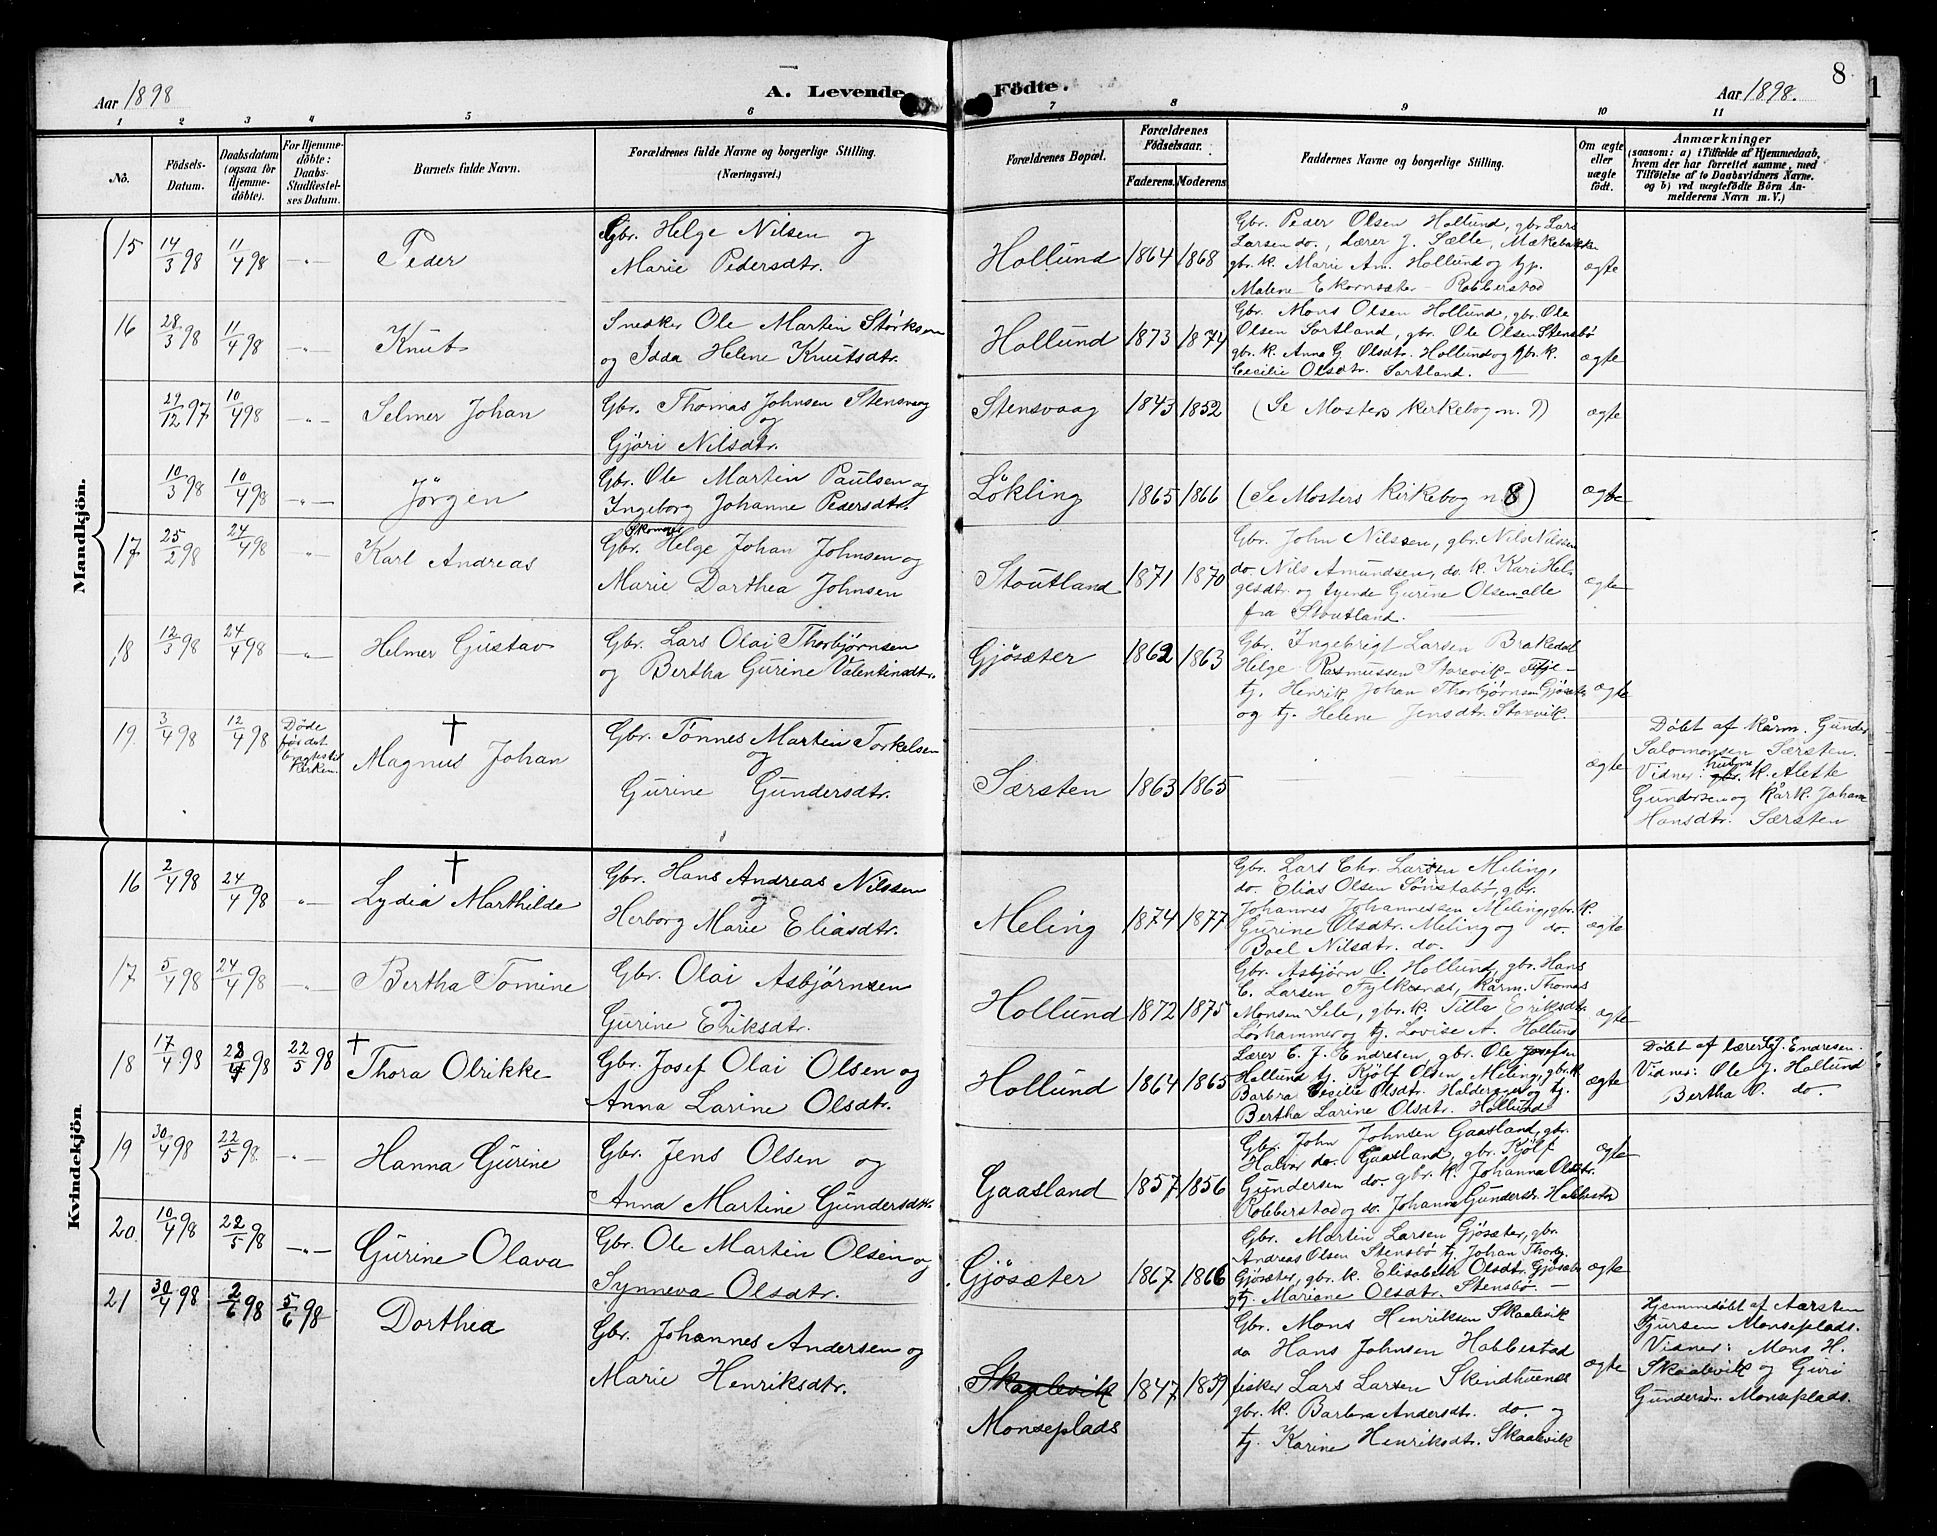 Aar 1898
A. Levende Födte.
8
Aar 1898.
1 2 3 4 5 6 7 8 9 10 11
No.
Födsels-Datum.
Daabsdatum (ogsaa for Hjemme-döbte).
For Hjemme-döbte: Daabs-Stadfæstel-ses Datum.
Barnets fulde Navn.
Forældrenes fulde Navne og borgerlige Stilling.
(Næringsvei.)
Forældrenes Bopæl.
Forældrenes Födselsaar.
Faderens. Moderens.
Faddernes Navne og borgerlige Stilling.
Om ægte eller uægte födt.
Anmærkninger
(saasom: a) i Tilfælde af Hjemmedaab, hvem der har forrettet samme, med Tilföielse af to Daabsvidners Navne. og b) ved uægtefödte Börn An-melderens Navn m. V.)
Mandkjön.
15 14/3 98 11/4 98 -"- Peder
Gbr. Helge Nilsen og
Marie Pedersdtr.
Hollund 1864 1868
Gbr. Peder Olsen Hollund, gbr. Lars
Larsen do., Lærer J. Sælle,
gbr. k. Marie Am. Hollund og tyr.
Malene Ekornsæter - Robberstad
ægte
16 28/3 98 11/4 98 -"- Knut
Snedker Ole Martin Störksen
og Idda Helene Knutsdtr.
Hollund 1873 1874
Gbr. Mons Olsen Hollund, gbr. Ole
Olsen Sortland, gbr. Ole Olsen Stensbö
gbr. k. Anna G. Olsdtr. Hollund og gbr. k.
Cecilie Olsdtr. Sortland.
ægte
29/12 97 10/4 98 -"- Selmer Johan
Gbr. Thomas Johnsen Stensvaag
og
Gjöri Nilsdtr.
Stensvaag 1843 1852
(Se Mosters Kirkebog n. 7)
ægte
10/3 98 10/4 98 -"- Jörgen
Gbr. Ole Martin Paulsen og
Ingeborg Johanne Pedersdtr.
Lökling 1865 1866
(Se Mosters Kirkebog n. 8)
ægte
17 25/2 98 24/4 98 -"- Karl Andreas
Skomager
Gbr. Helge Johan Johnsen og
Marie Dorthea Johnsen
Stoutland 1871 1870
Gbr. John Nilssen, gbr. Nils Nilssen
do. Nils Amundsen, do. k. Kari Hel-
gesdtr. og tyende Gurine Olsen alle
fra Stoutland.
ægte
18 12/3 98 24/4 98 -"- Helmer Gustav
Gbr. Lars Olai Thorbjörnsen
og Bertha Gurine Valentinsdtr.
Gjösæter 1862 1863
Gbr. Ingebrigt Larsen Brakedal
Helge Rasmussen Storevik - Fitje -
tj. Henrik Johan Thorbjörnsen Gjösæter
og tj. Helene Jensdtr. Storvik.
ægte
19. 3/4 98 12/4 98
Döde
för det
bragtes til
Kirken.
†
Magnus Johan
Gbr. Tönnes Martin Torkelsen
og
Gurine Gundersdtr.
Særsten 1863 1865
ægte
Döbt af Kårm. Gunder
Salomonsen Særsten.
Vidner: gbr. k. Alette
Gundersen og Kårk. Johanne
Hansdtr. Særsten
Kvindekjön.
16 2/4 98 24/4 98 -"-
†
Lydia Marthilde
Gbr. Hans Andreas Nilssen
og
Herborg Marie Eliasdtr.
Meling 1874 1877
Gbr. Lars Chr. Larsen Meling,
do. Elias Olsen Sönstabö, gbr.
Johannes Johannessen Meling, gbr. k.
Gurine Olsdtr. Meling og do.
Boel Nilsdtr. do.
ægte
17 5/4 98 24/4 98 -"- Bertha Tomine
Gbr. Olai Asbjörnsen
og
Gurine Eriksdtr.
Hollund 1872 1875
Gbr. Asbjörn O. Hollund, gbr. Hans
C. Larsen Fylkesnæs, Kårm. Thomas
Monsen Sele, gbr. k. Tilla Eriksdtr.
Löshammer og tj. Lovise A. Hollund
ægte
18 17/4 98 98 22/5 98
†
Thora Olrikke
Gbr. Josef Olai Olsen og
Anna Larine Olsdtr.
Hollund 1864 1865
Lærer E. J. Endresen, gbr. Ole Josefsen
Hollund tj. Kjölf Olsen, Meling, gbr. k.
Barbra Cecilie Olsdtr. Haldorsen og tj.
Bertha Larine Olsdtr. Hollund
ægte
Döbt af Lærer E. J. Endresen.
Vidner: Ole J. Hollund
Bertha O. do.
19 30/4 98 22/5 98. -"- Hanna Gurine
Gbr. Jens Olsen og
Anna Martine Gundersdtr.
Gaasland 1857 1856
Gbr. John Johnsen Gaasland, gbr.
Halvor do. Gaasland, gbr. Kjölf
Gundersen do. gbr. k. Johanna Olsdtr.
Robberstad og do. Johanna Gundersdtr. Habbestad
ægte
20. 10/4 98 22/5 98 -"- Gurine Olava
Gbr. Ole Martin Olsen og
Synneva Olsdtr.
Gjösæter 1867 1866
Gbr. Martin Larsen Gjösæter, gbr.
Andreas Olsen Stensbö tj. Johan Thorbj.
Gjösæter, gbr. k. Elisabeth Olsdtr. Gjösæter
tj. Mariane Olsdtr. Stensbö -
ægte
21 30/4 98 2/6 98 5/6 98 Dorthea
Gbr. Johannes Andersen og
Marie Henriksdtr.
Skaalevik
Monseplads
1847 1859
Gbr. Mons Henriksen Skaalevik
do Hans Johnsen Habbestad
fisker Lars Larsen Skindhuenæs
gbr. k. Barbra Andersdtr. do. og
tj. Karine Henriksdtr. Skaalevik
ægte
Hjemmedöbt af Aarsten
Sjursen Monseplads.
Vidner: Mons H.
Skaalevik og Guri
Gundersdtr. Monseplads.